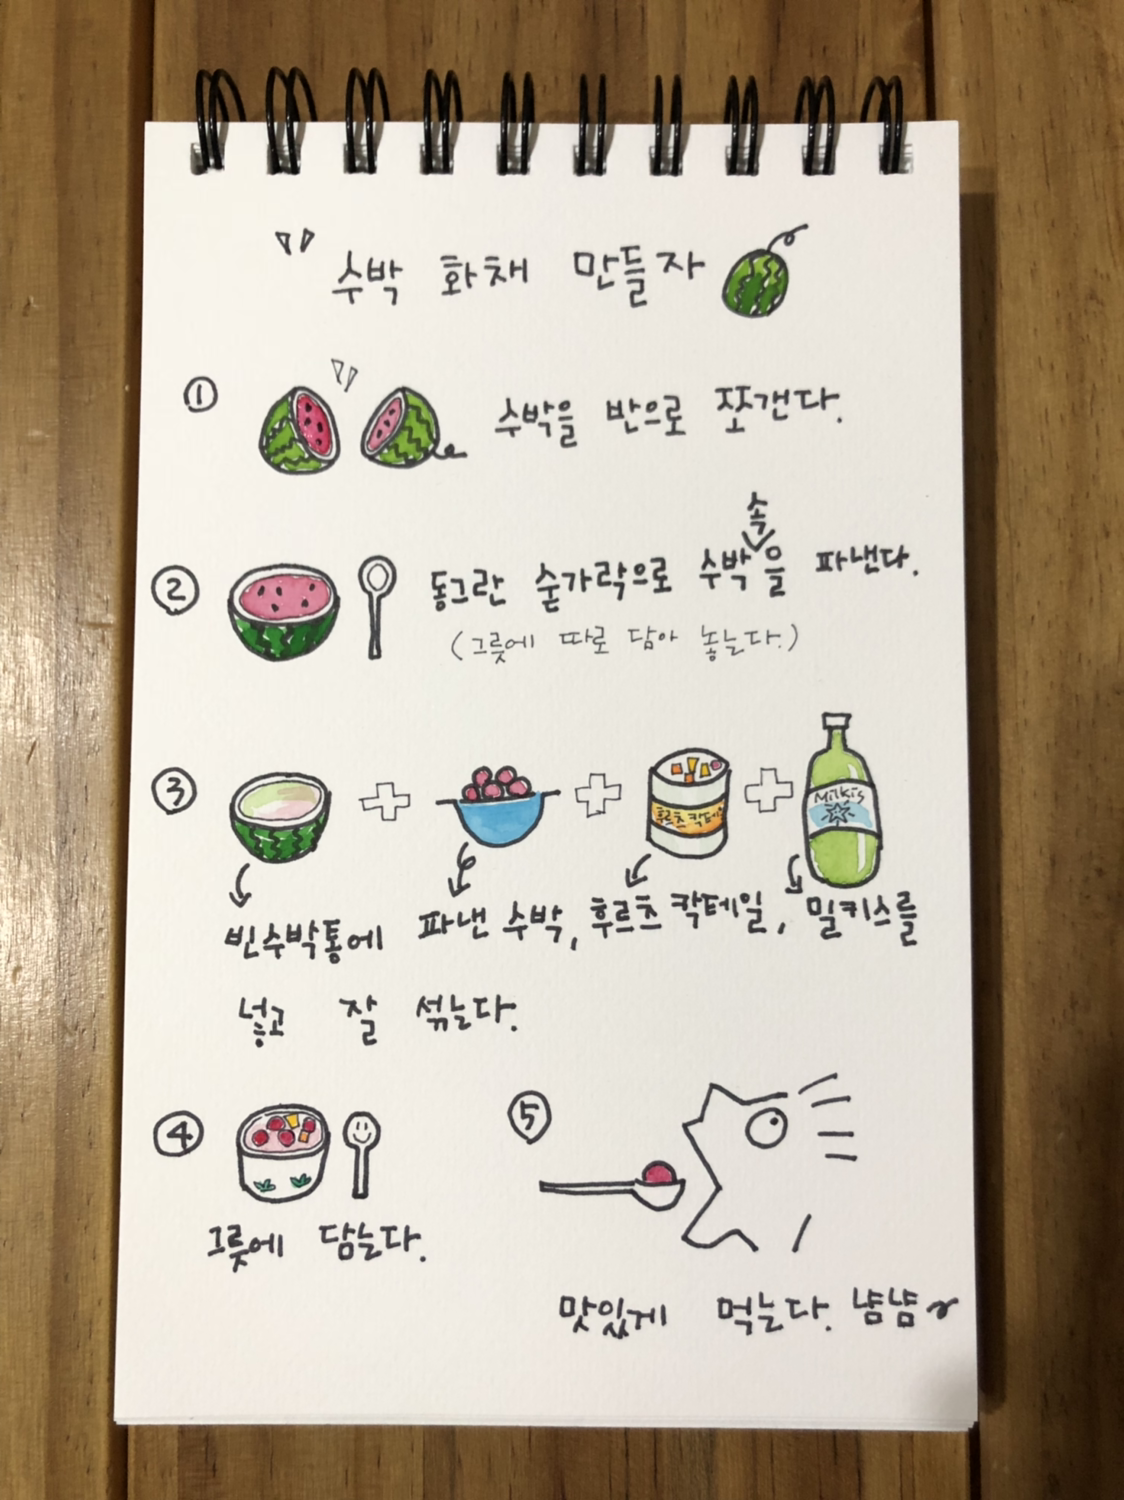 수박 화채 만들자
① 수박을 반으로 쪼갠다.
속
② 동그란 숟가락으로 수박을 파낸다.
(그릇에 따로 담아 놓는다.)
③
후르츠 칵테일
Milkis
빈수박통에 파낸 수박, 후르츠 칵테일, 밀키스를
넣고 잘 섞는다.
④
그릇에 담는다.
⑤
맛있게 먹는다. 냠냠~